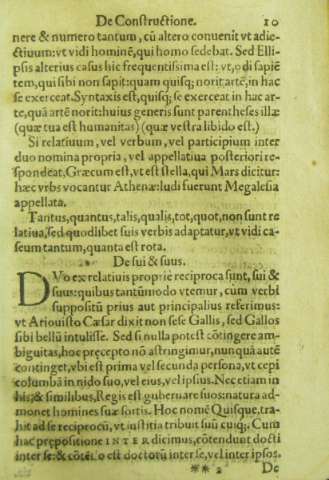 De Constructione. 10
nere & numero tantum, cũ altero conuenit vt adie-
ctiuum: vt vidi hominẽ, qui homo sedebat. Sed Elli-
psis alterius casus hic frequentissima est: vt, odi sapiẽ
tem, qui sibi non sapit: quam quisq; norit artẽ, in hac
se exerceat. Syntaxis est, quisq; se exerceat in hac ar-
te, quã artẽ norit: huius generis sunt parentheses illæ
(quæ tua est humanitas) (quæ vestra libido est.)
Si relatiuum, vel verbum, vel participium inter
duo nomina propria, vel appellatiua posteriori re-
spondeat, Græcum est, vt est stella, qui Mars dicitur:
hæc vrbs vocantur Athenæ: ludi fuerunt Megalesia
appellata.
Tantus, quantus, talis, qualis, tot, quot, non sunt re
latiua, sed quodlibet suis verbis adaptatur, vt vidi ca-
seum tantum, quanta est rota.
De sui & suus.
DVo ex relatiuis propriè reciproca sunt, sui &
suus: quibus tantũmodo vtemur, cùm verbi
suppositũ prius aut principalius referimus:
vt Ariouisto Cæsar dixit non sese Gallis, sed Gallos
sibi bellũ intulisse. Sed si nulla potest cõtingere am-
biguitas, hoc præcepto nõ astringimur, nunquã autẽ
continget, vbi est prima vel secunda persona, vt cepi
columbã in nido suo, vel eius, vel ipsius. Nec etiam in
his, & similibus, Regis est gubernare suos: natura ad-
monet homines suæ sortis. Hoc nomẽ Quisque, tra-
hit ad se reciprocũ, vt iustitia tribuit suũ cuiq;. Cum
hac præpositione INTER dicimus, cõtendunt docti
inter se: & cõtẽtio est doctorũ inter se, vel inter ipsos.
** 2 De